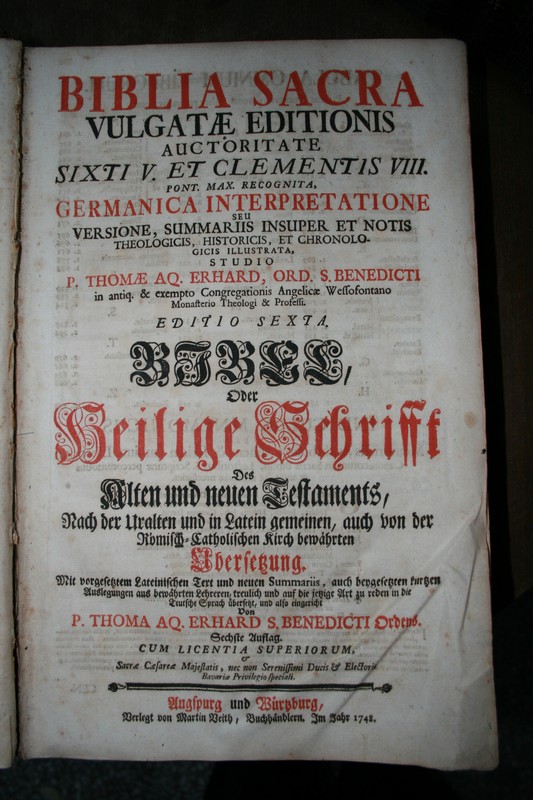 BIBLIA SACRA
VULGATÆ EDITIONIS
AUCTORITATE
SIXTI V. ET CLEMENTIS VIII.
PONT. MAX. RECOGNITA,
GERMANICA INTERPRETATIONE
SEU
VERSIONE, SUMMARIIS INSUPER ET NOTIS
THEOLOGICIS, HISTORICIS, ET CHRONOLO-
GICIS ILLUSTRATA,
STUDIO
P. THOMÆ AQ. ERHARD, ORD. S. BENEDICTI
in antiq. & exempto Congregationis Angelicæ Wessofontano
Monasterio Theologi & Professi.
EDITIO SEXTA.
BIBEL,
Oder
Heilige Schrifft
Des
Alten und neuen Testaments,
Nach der Uralten und in Latein gemeinen, auch von der
Römisch-Catholischen Kirch bewährten
Übersetzung.
Mit vorgesetztem Lateinischen Text und neuen Summariis, auch beygesetzten kurtzen
Auslegungen aus bewährten Lehreren, treulich und auf die jetzige Art zu reden in die
Teutsche Sprach übersetzt, und also eingericht
Von
P. THOMA AQ. ERHARD S. BENEDICTI Ordens.
Sechste Auflag.
CUM LICENTIA SUPERIORUM,
&
Sacræ Cæsareæ Majestatis, nec non Serenissimi Ducis & Electoris
Bavariæ Privilegio speciali.
Augspurg und Würtzburg,
Verlegt von Martin Veith, Buchhändlern. Im Jahr 1748.